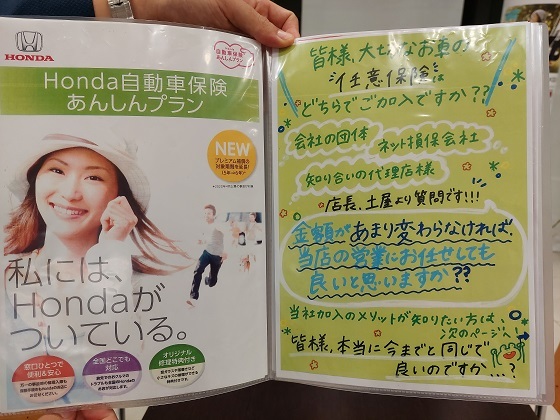 HONDA
自動車保険
あんしんプラン
Honda自動車保険
あんしんプラン
NEW
私には、
Hondaが
ついている。
窓口ひとつで
便利&安心
全国どこでも
対応
オリジナル
修理特典付き
皆様、大切なお車の
任意保険は
どちらでご加入ですか??
会社の団体
ネット損保会社
知り合いの代理店様
店長、土屋より質問です!!!
金額があまり変わらなければ、
当店の営業にお任せしても
良いと思いますか??
当社加入のメリットが知りたい方は、
次のページへ!
皆様、本当に今までと同じで
良いのですか…?